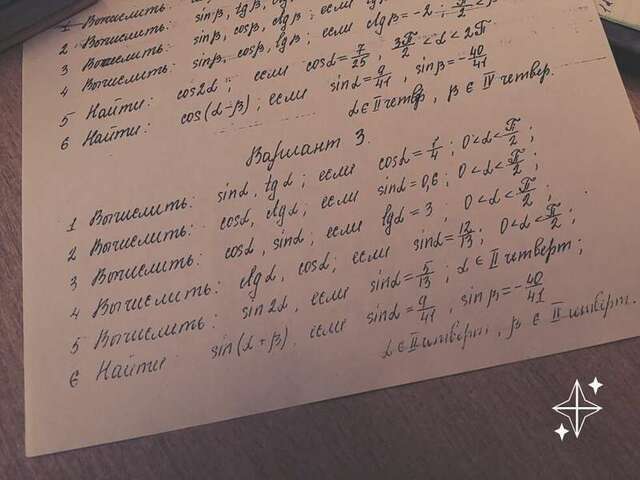 1 Вычислить:
2 Вычислить: sinβ, tgβ,
3 Вычислить: sinβ, cosβ, ctgβ
4 Вычислить: sinβ, cosβ, tgβ; если ctgβ=-2; π/2<β
5 Найти: cos2α; если cosα=7/25, 3π/2<α<2π
6 Найти: cos(α-β); если sinα=9/41, sinβ=-40/41
α∈II четвр, β∈IV четвер.
Вариант 3.
1 Вычислить: sinα, tgα; если cosα=1/4; 0<α<π/2;
2 Вычислить: cosα, ctgα; если sinα=0,6; 0<α<π/2;
3 Вычислить: cosα, sinα; если tgα=3; 0<α<π/2;
4 Вычислить: ctgα, cosα; если sinα=12/13; 0<α<π/2;
5 Вычислить: sin2α, если sinα=5/13; α∈II четверт;
6 Найти: sin(α+β), если sinα=9/41, sinβ=-40/41
α∈II четверт, β∈II четверт.